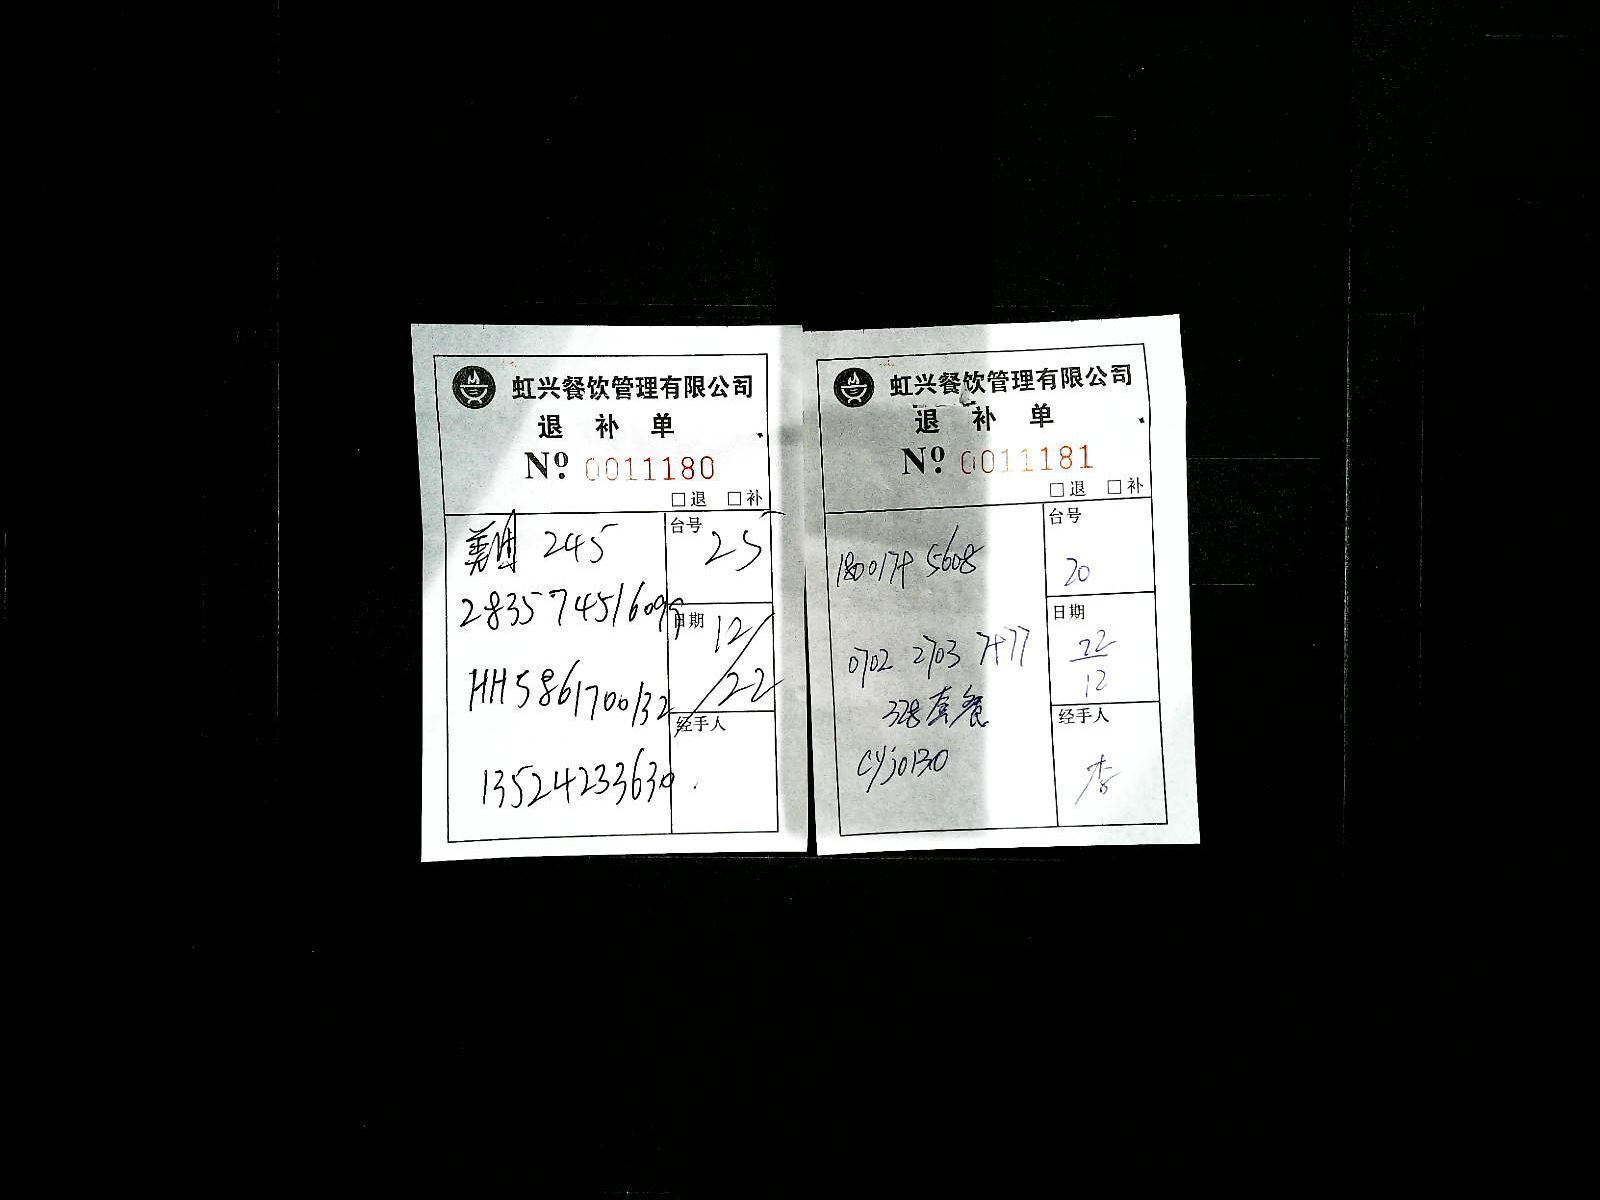 虹兴餐饮管理有限公司
退 补 单
Nº 0011180
□退 □补
美团 245
台号
25
283574516099
日期
12/22
HH5861700132
经手人
13524233630
虹兴餐饮管理有限公司
退 补 单
Nº 0011181
□退 □补
台号
20
180017 5608
日期
22
12
0702 2703 7477
328套餐
经手人
cyjo130
李